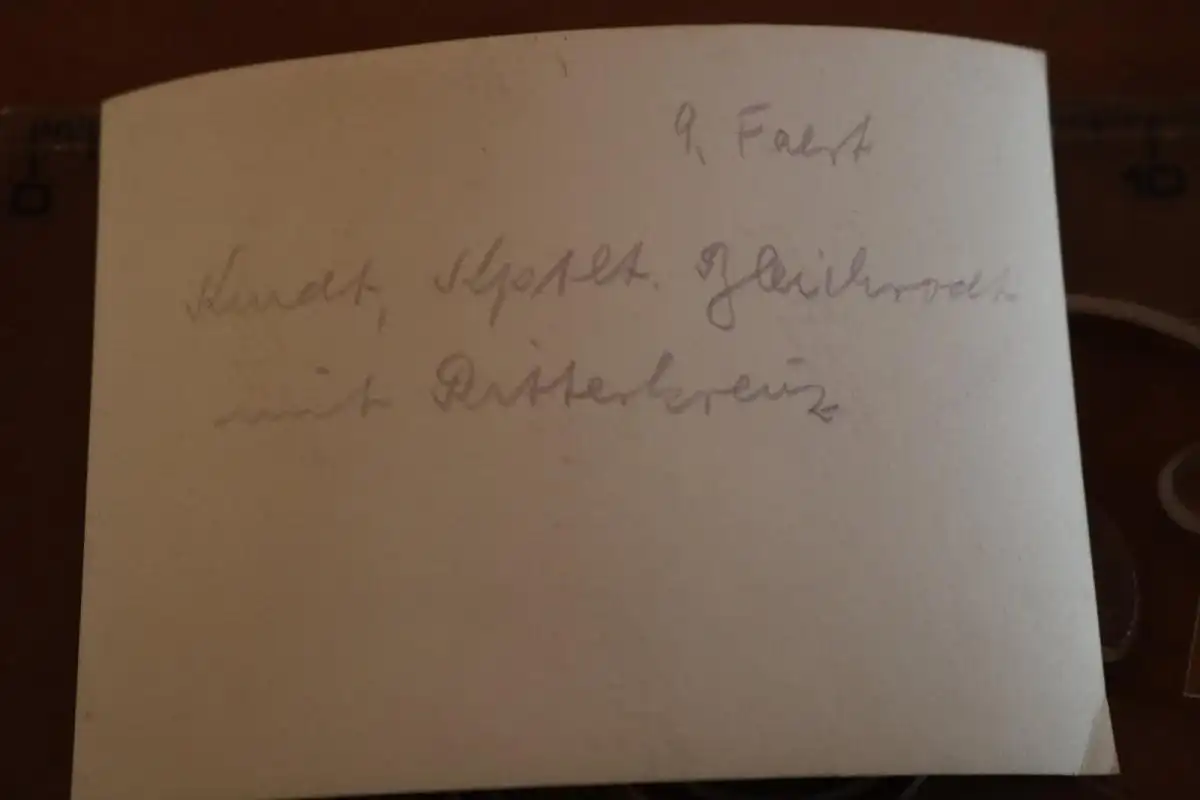 9. Fahrt
Kundt, Kptlt. Bleichrodt
mit Ritterkreuz
0 10